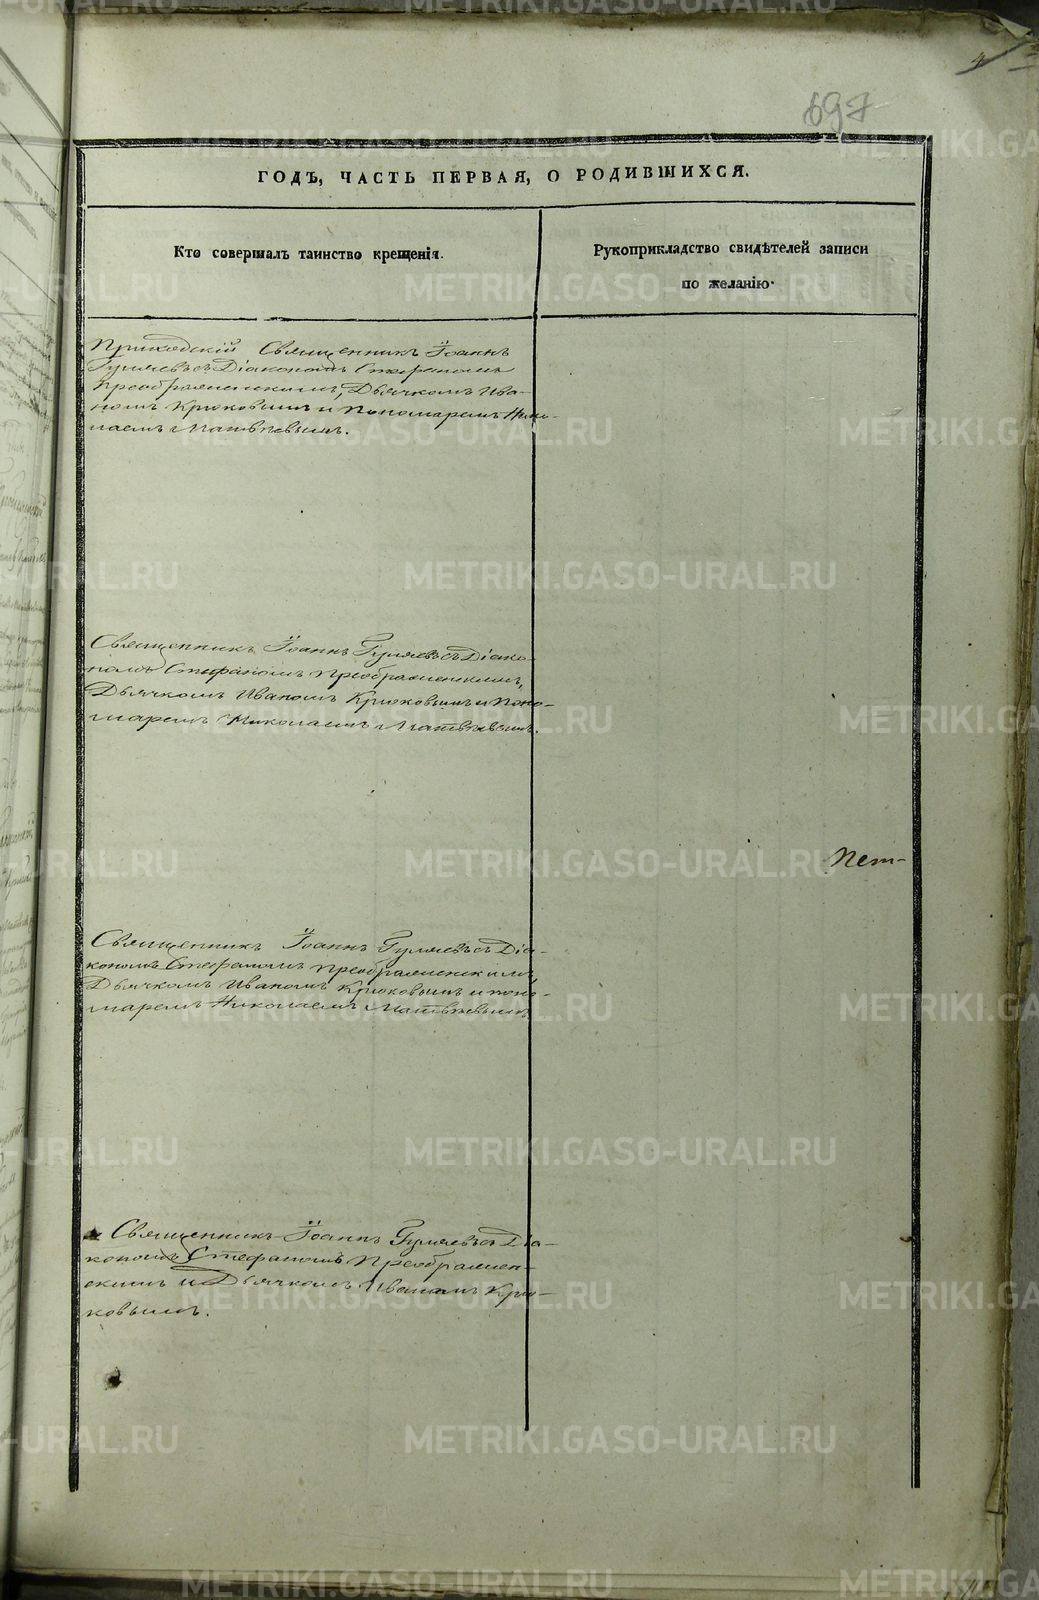 4
697
ГОДЪ, ЧАСТЬ ПЕРВАЯ, О РОДИВШИХСЯ.
Кто совершалъ таинство крещенія.
Рукоприкладство свидѣтелей записи
по желанію.
Приходскій Священникъ Іоаннъ
Гуляевъ съ Діакономъ Стефаномъ
Преображенскимъ, Дьячкомъ Ива-
номъ Крюковымъ и Пономаремъ Нико-
лаемъ Матвѣевымъ.
Священникъ Іоаннъ Гуляевъ съ Діако-
номъ Стефаномъ Преображенскимъ,
Дьячкомъ Иваномъ Крюковымъ и Поно-
маремъ Николаемъ Матвѣевымъ.
Священникъ Іоаннъ Гуляевъ съ Діа-
кономъ Стефаномъ Преображенскимъ,
Дьячкомъ Иваномъ Крюковымъ и поно-
маремъ Николаемъ Матвѣевымъ
Священникъ Іоаннъ Гуляевъ съ Діа-
кономъ Стефаномъ Преображен-
скимъ и Дьячкомъ Иваномъ Крю-
ковымъ.
METRIKI.GASO-URAL.RU